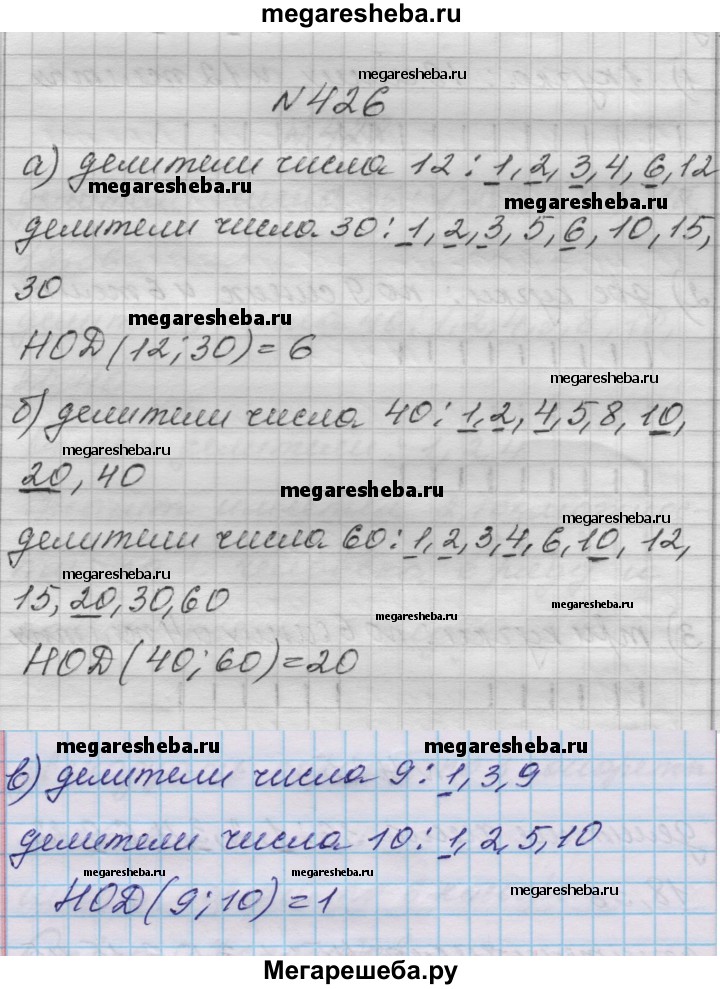 megaresheba.ru
megaresheba.ru
№426
а) делители числа 12: 1, 2, 3, 4, 6, 12
megaresheba.ru
megaresheba.ru
делители числа 30: 1, 2, 3, 5, 6, 10, 15,
30
megaresheba.ru
НОД(12; 30) = 6
megaresheba.ru
б) делители числа 40: 1, 2, 4, 5, 8, 10,
megaresheba.ru
20, 40
megaresheba.ru
megaresheba.ru
делители числа 60: 1, 2, 3, 4, 6, 10, 12,
megaresheba.ru
15, 20, 30, 60
megaresheba.ru
НОД(40; 60) = 20
megaresheba.ru
megaresheba.ru
в) делители числа 9: 1, 3, 9
делители числа 10: 1, 2, 5, 10
megaresheba.ru
megaresheba.ru
НОД(9; 10) = 1
Мегарешеба.ру